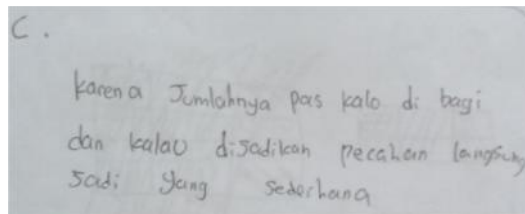 C.
karena Jumlahnya pas kalo di bagi
dan kalau disadikan pecahan langsung
sadi yang sederhana